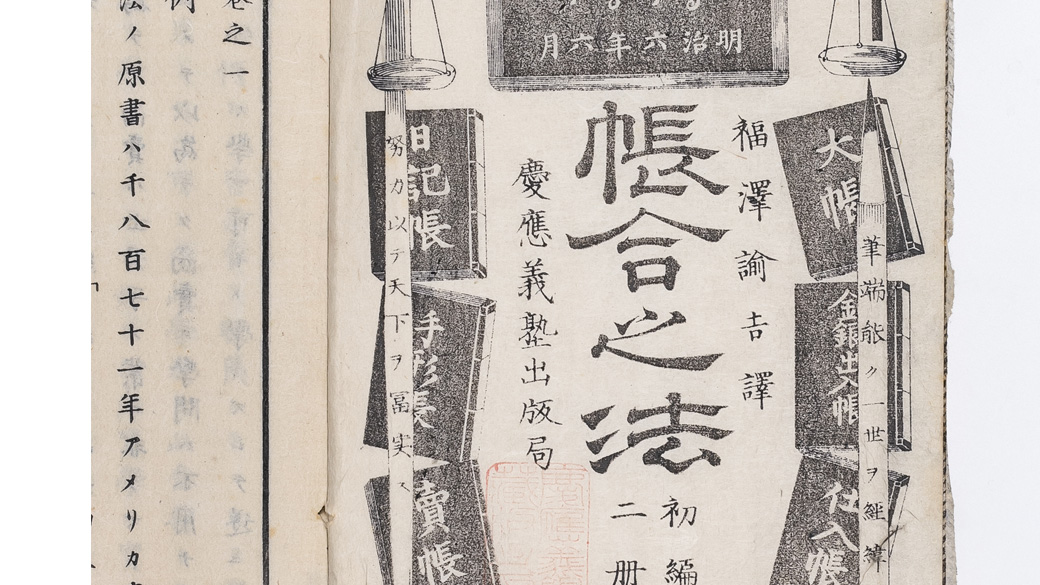 明治六年六月
福澤諭吉譯
帳合之法
初編
二册
慶應義塾出版局
大帳
金銀出入帳
仕入帳
筆端能ク一世ヲ經緯
日記帳
手形帳
賣帳
努力以テ天下ヲ冨実ス
巻之一
例
法ノ原書ハ千八百七十一年アメリカ